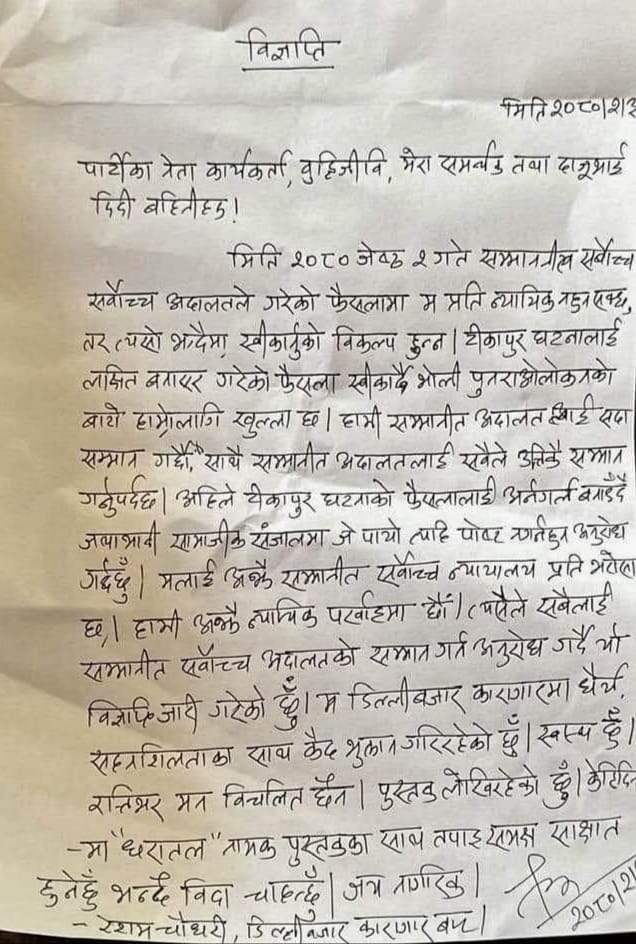 विज्ञप्ति
मिति २०८०।२।३
पार्टीका नेता कार्यकर्ता, वुद्दिजीवि, मेरा समर्थक तथा दाजुभाई
दिदी बहिनीहरु!
मिति २०८० जेष्ठ २ गते सम्माननीय सर्वोच्च
सर्वोच्च अदालतले गरेको फैसलामा म प्रति न्यायिक नहुन सक्छ,
तर त्यसो भन्दैमा स्वीकार्नुको विकल्प हुन्न। टीकापुर घटनालाई
लक्षित बनाएर गरेको फैसला स्वीकार्दै भोली पुनरावोलोकनको
बाटो हाम्रोलागि खुल्ला छ। हामी सम्मानीत अदालत लाई सदा
सम्मान गर्छौं, साथै सम्मानीत अदालतलाई सवैले उत्तिकै सम्मान
गर्नुपर्दछ। अहिले टीकापुर घटनाको फैसलालाई अर्नगर्ल बनाउँदै
जथाभावी सामाजीक संजालमा जे पायो त्यहि पोष्ट नगर्नहुन अनुरोध
गर्दछुँ। मलाई अझै सम्मानीत सर्वोच्च न्यायालय प्रति भरोसा
छ,। हामी अझै न्यायिक पर्खाइमा छौं। त्यसैले सबैलाई
सम्मानीत सर्वोच्च अदालतको सम्मान गर्न अनुरोध गर्दै यो
विज्ञप्ति जारी गरेको छुँ। म डिल्लीबजार कारागारमा धैर्य,
सहनशिलताका साथ कैद भुक्तान गरिरहेको छुँ। स्वस्थ छुँ।
रत्तिभर मन विचलित छैन। पुस्तक लेखिरहेको छुँ। केहिदिन
-मा "धरातल" नामक पुस्तकका साथ तपाइ समक्ष साक्षात
हुनेछुँ भन्दै विदा चाहन्छुँ। जय नागरिक।
- रेशम चौधरी, डिल्लीबजार कारागार बाट।
२०८०।२।